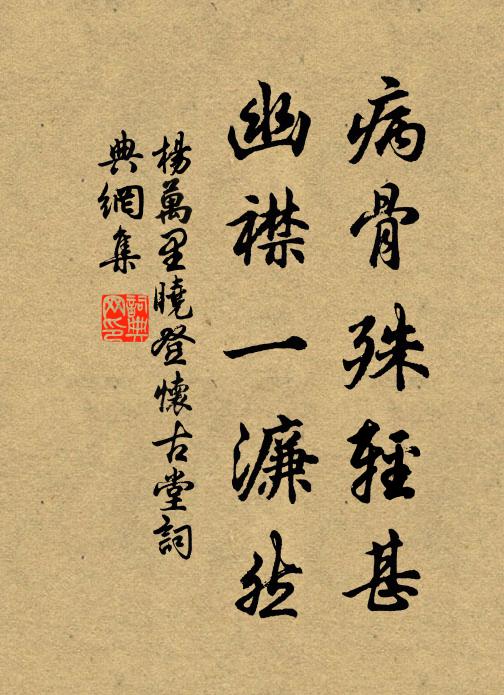 病骨殊輕甚
幽襟一濂然
楊萬里曉登懷古堂詞
典網集
詞典网印